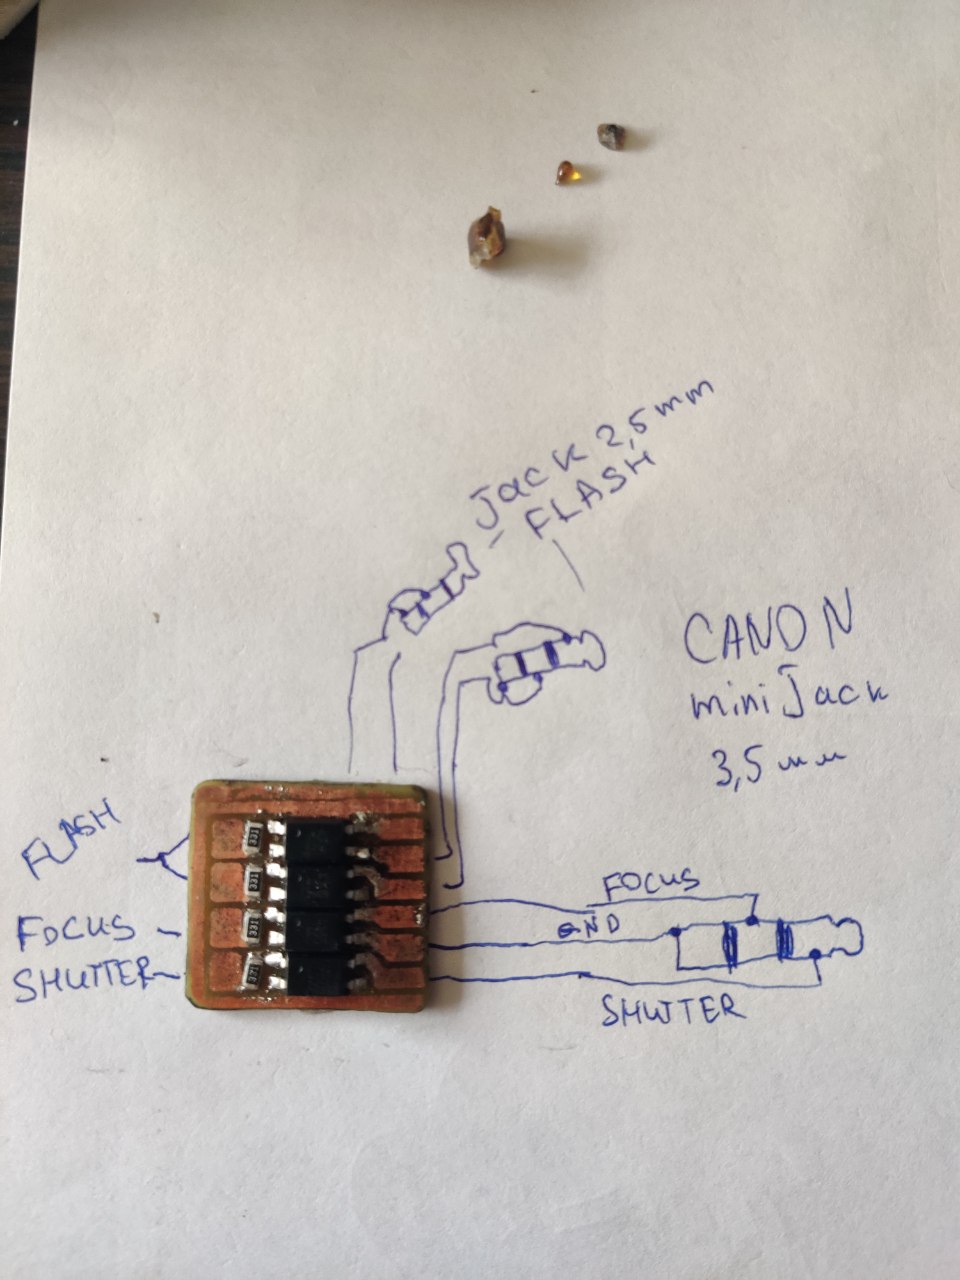 Jack 2,5mm
FLASH
CANON
mini Jack
3,5 мм
FLASH
FOCUS
SHUTTER
331
331
331
331
FOCUS
GND
SHUTTER